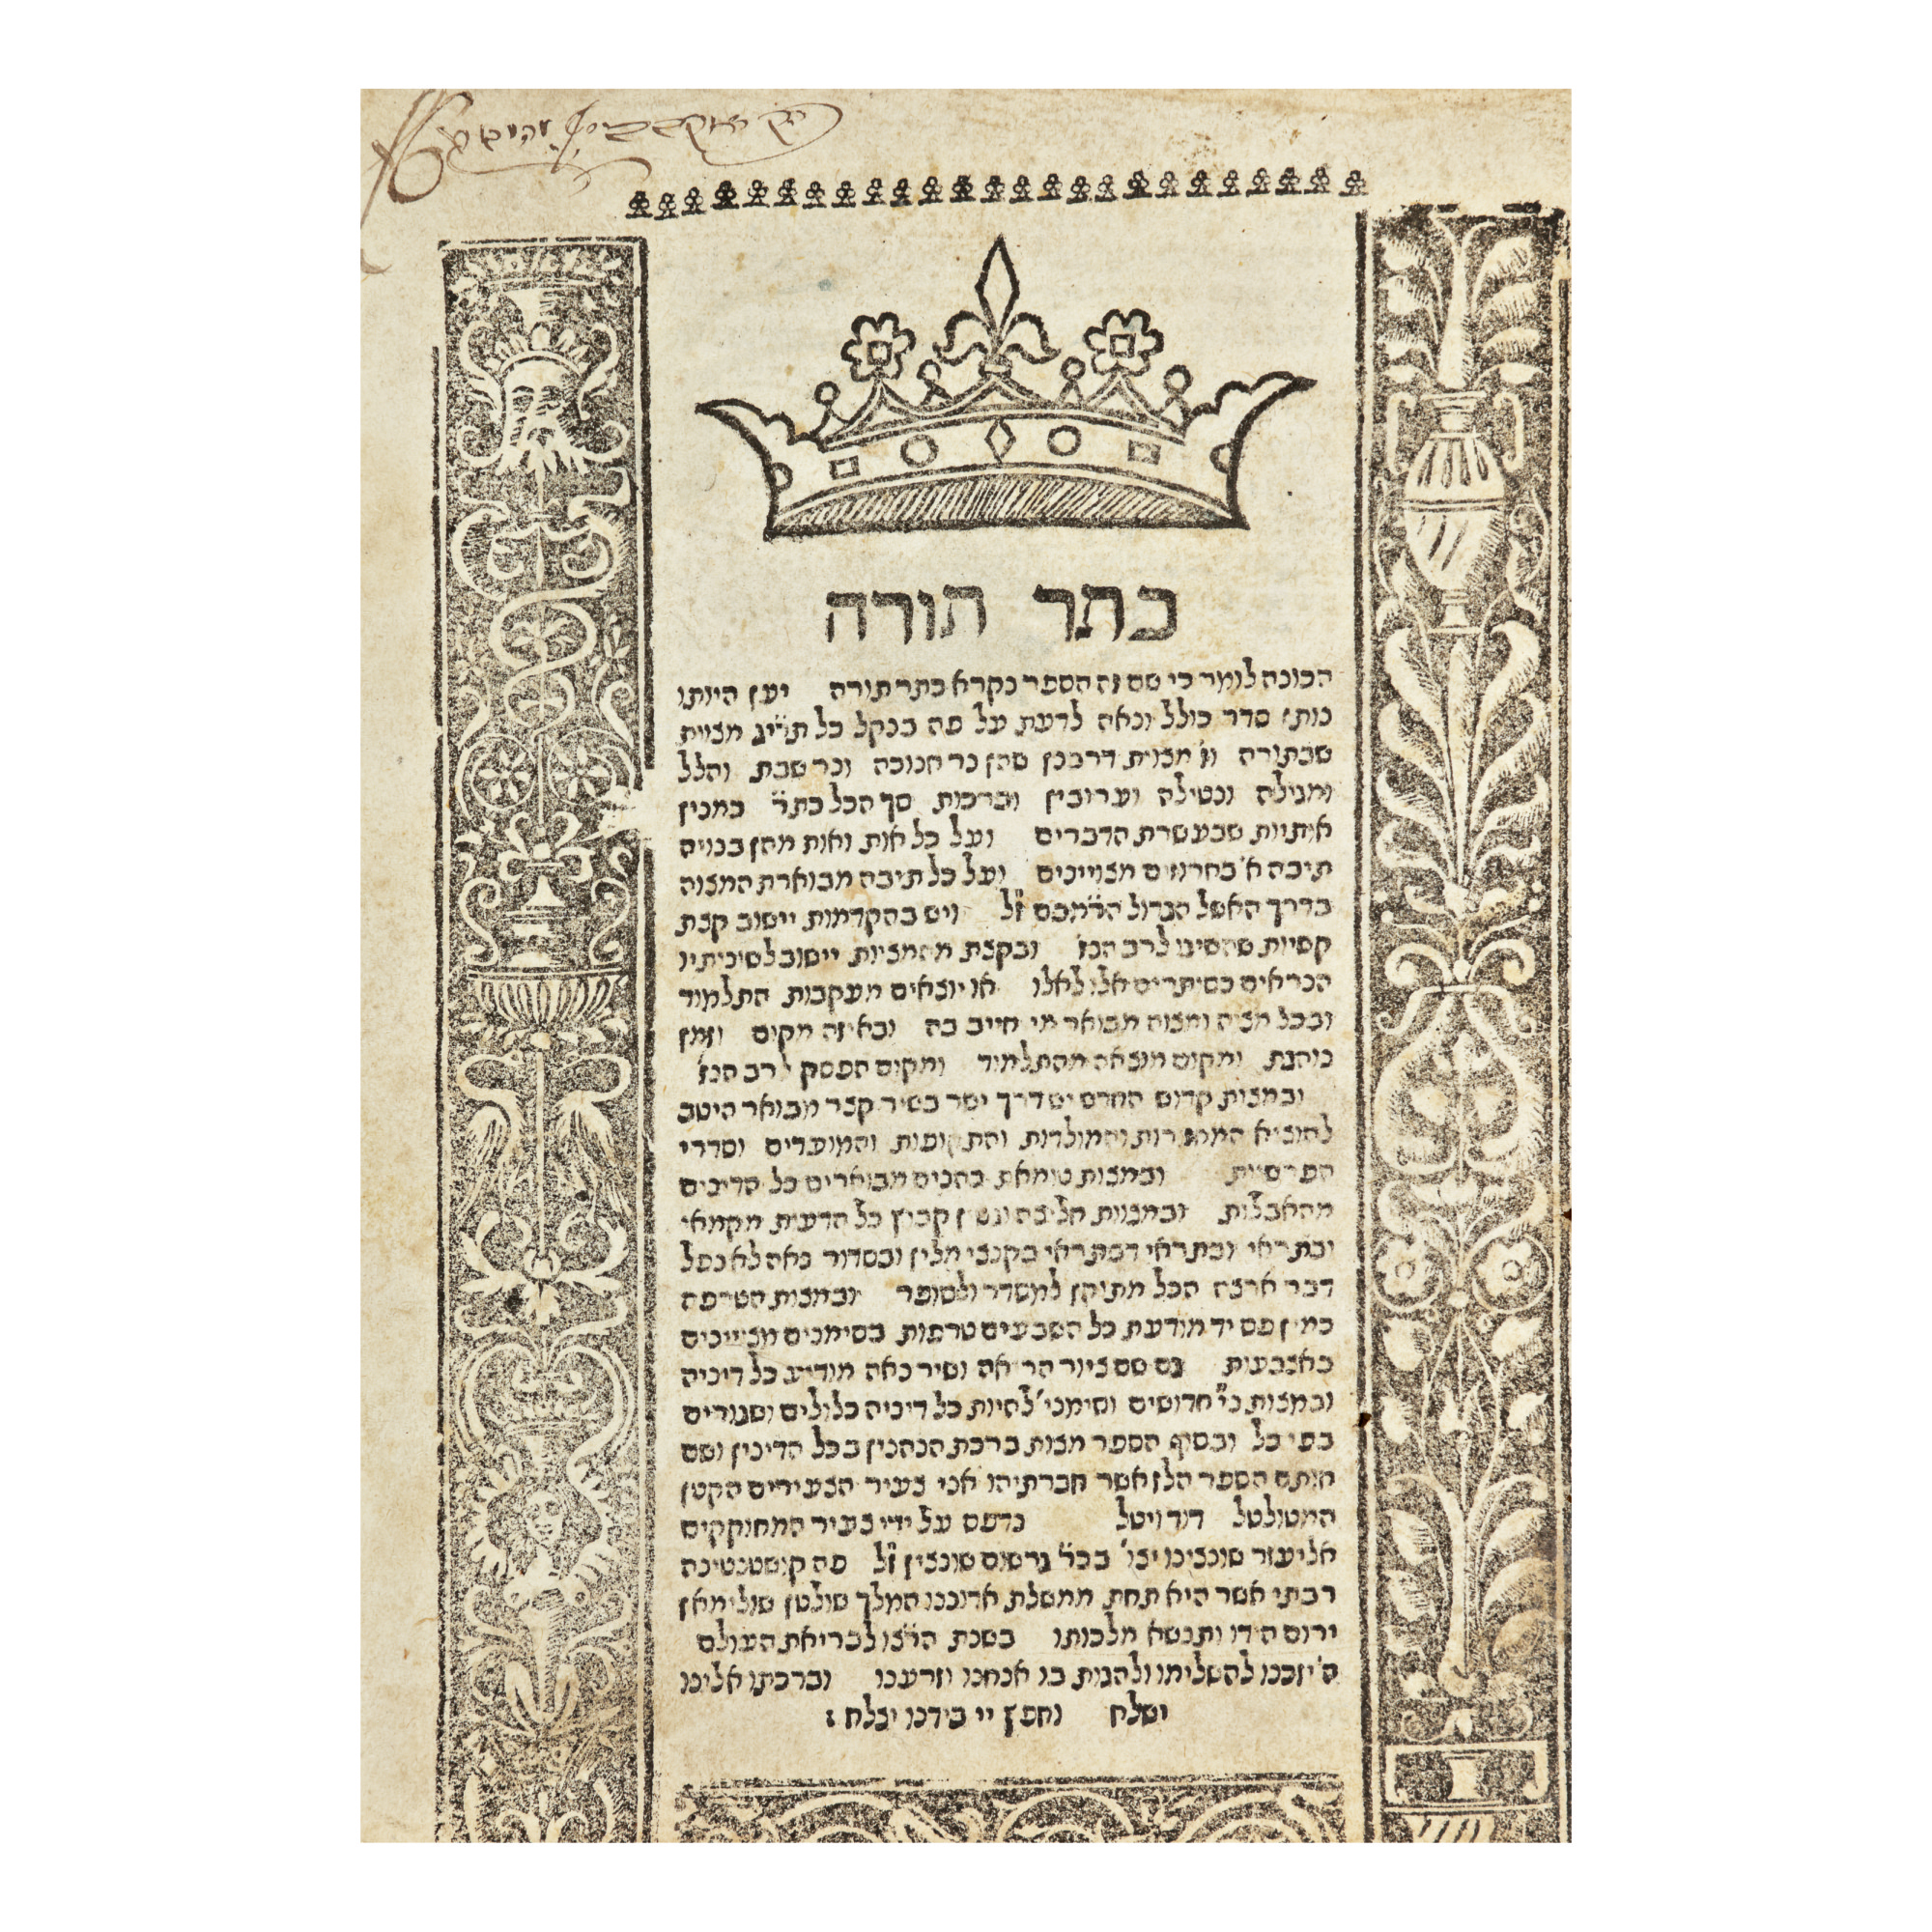 כתר תורה
הכונה לומר כי שם זה הספר נקרא כתר תורה יען היותו
סדר כולל ונאה לדעת על פה בנקל כל תרי״ג מצוות
שבתורה וז׳ מצוות דרבנן שהן נר חנוכה ונר שבת והלל
ומגילה ונטילה וערובין וברכות סך הכל כת״ר כמנין
אותיות שבעשרת הדברים ועל כל אות ואות מהן בנויה
תיבה א׳ בחרוזים מצויינים ועל כל תיבה מבוארת המצוה
בדרך האשל הגדול הר״מבם ז״ל ויש בהקדמות יישוב קצת
קשיות שהשיגו לרב הנז׳ ובקצת מהמצות יישוב לשיניתיו
הנראים כסותרים אלו לאלו או יוצאים מעקבות התלמוד
ובכל מצוה ומצוה מבואר מי חייב בה ובאיזה מקום וזמן
נוהגת ומקום מוצאה מהתלמוד ומקום הפסק לרב הנז׳
ובמצות קדוש החדש יש דרך ישר בשיר קצר מבואר היטב
להוציא והמולדות והתקופות והמועדים וסדרי
הפרשיות ובמצות טומאת כהנים מבוארים כל הדינים
מהאבלות ובמצות חליצה קבוץ כל הדעות מקמאי
ובתראי ובתראי דבתראי בקוצר מלין ובסדור נאה לא נפל
דבר ארצה הכל מתוקן למסדר ולסופר ובמצות הטרפה
כמין פס יד מודעת כל השבעים טרפות בסימנים מצויינים
באצבעות גם שם ציור הריאה ושיר נאה מודיע כל דיניה
ובמצות חדושים וסימני׳ להיות כל דיניה כלולים ושגורים
בפי כל ובסוף הספר מצות ברכת הנהנין בכל הדינין ושם
חותם הספר הלז אשר חברתיהו אני צעיר הצעירים הקטן
המטולטל דוד ויטל נדפס על ידי צעיר המחוקקים
אליעזר שונצינו יצו׳ בכ״ר גרשום שונצין ז״ל פה קושטנטינה
רבתי אשר היא תחת ממשלת אדוננו המלך שולטן שולימאן
ירום הודו ותנשא מלכותו בשנת הר״צו לבריאת העולם
ה׳ יזכנו להשלימו ולהגות בו אנחנו וזרענו וברכתו אלינו
ישלח וחפץ יי בידנו יצלח :